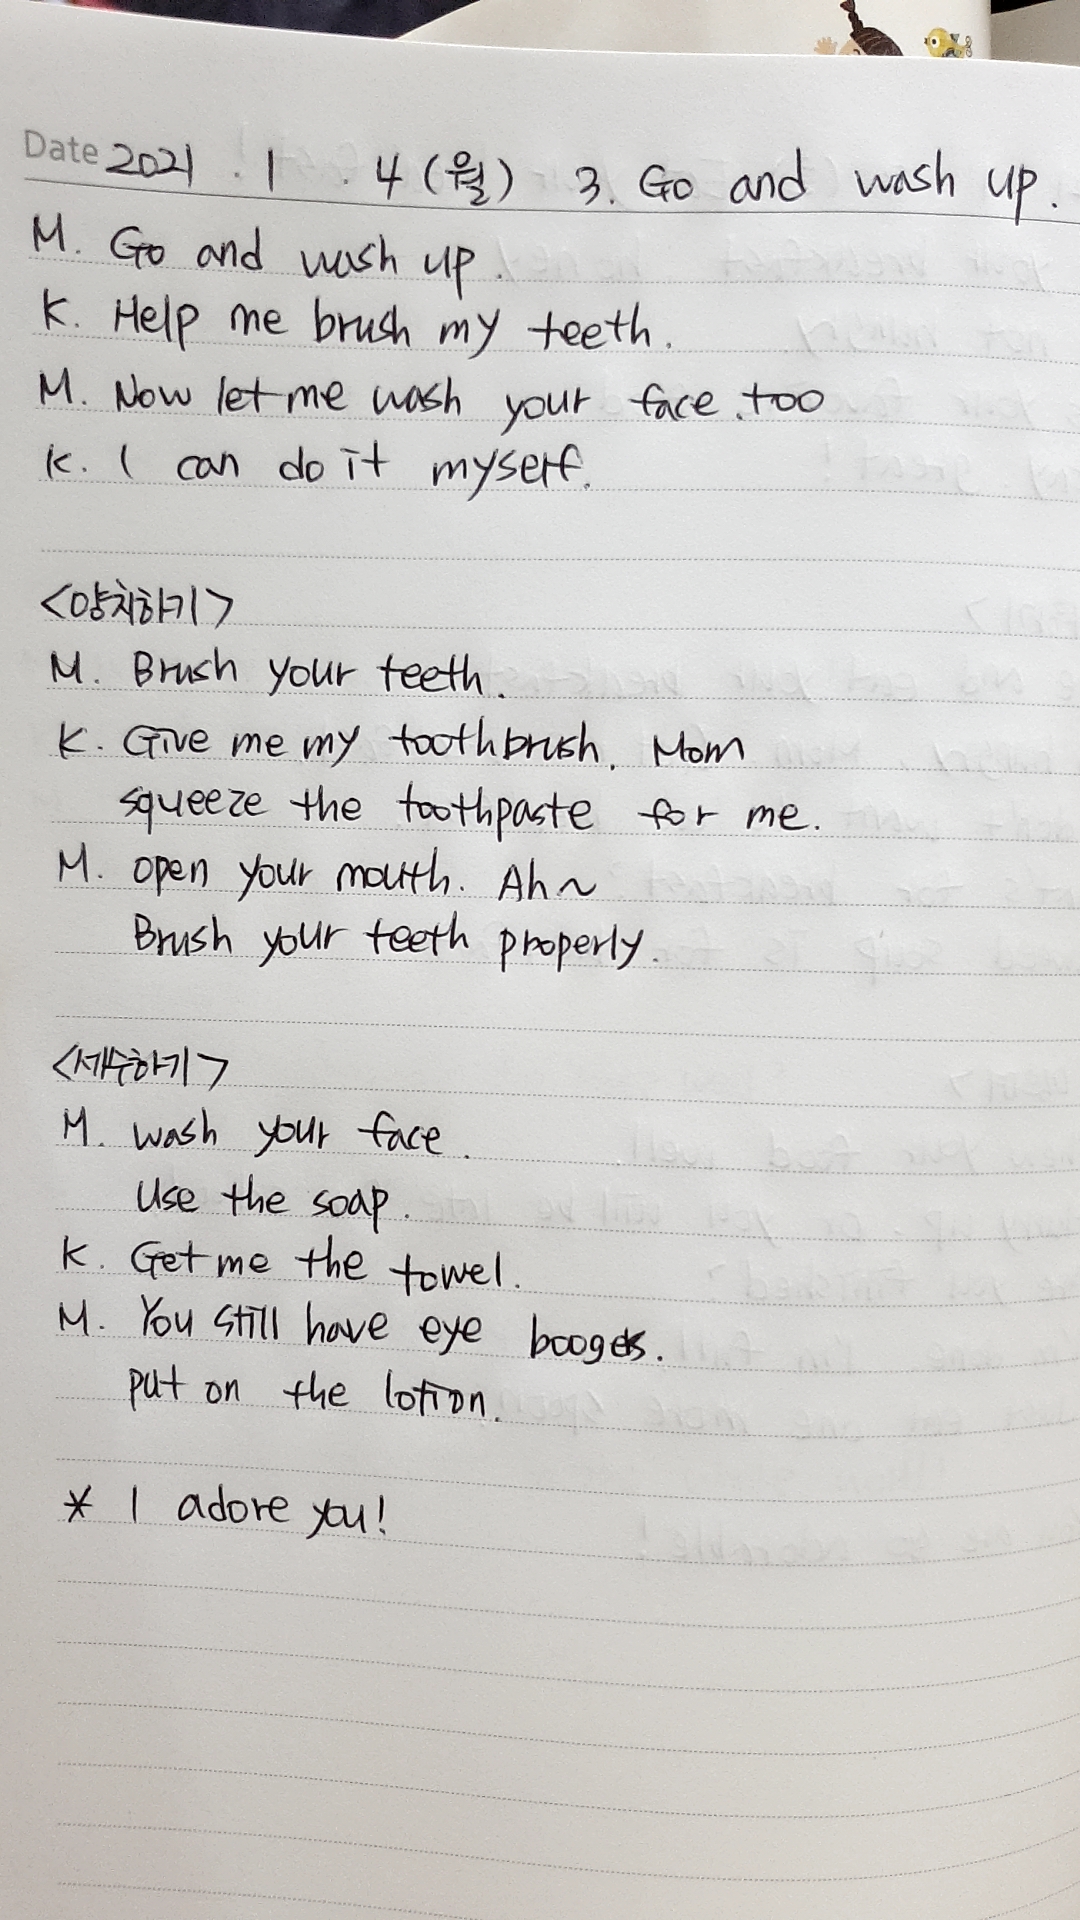 Date 2021 . 1 . 4 (월) 3. Go and wash up.
M. Go and wash up.
K. Help me brush my teeth.
M. Now let me wash your face. too
K. I can do it myself.
<양치하기>
M. Brush your teeth.
K. Give me my toothbrush. Mom
squeeze the toothpaste for me.
M. open your mouth. Ah~
Brush your teeth properly.
<세수하기>
M. wash your face.
Use the soap.
K. Get me the towel.
M. You still have eye boogers.
put on the lotion.
* I adore you!